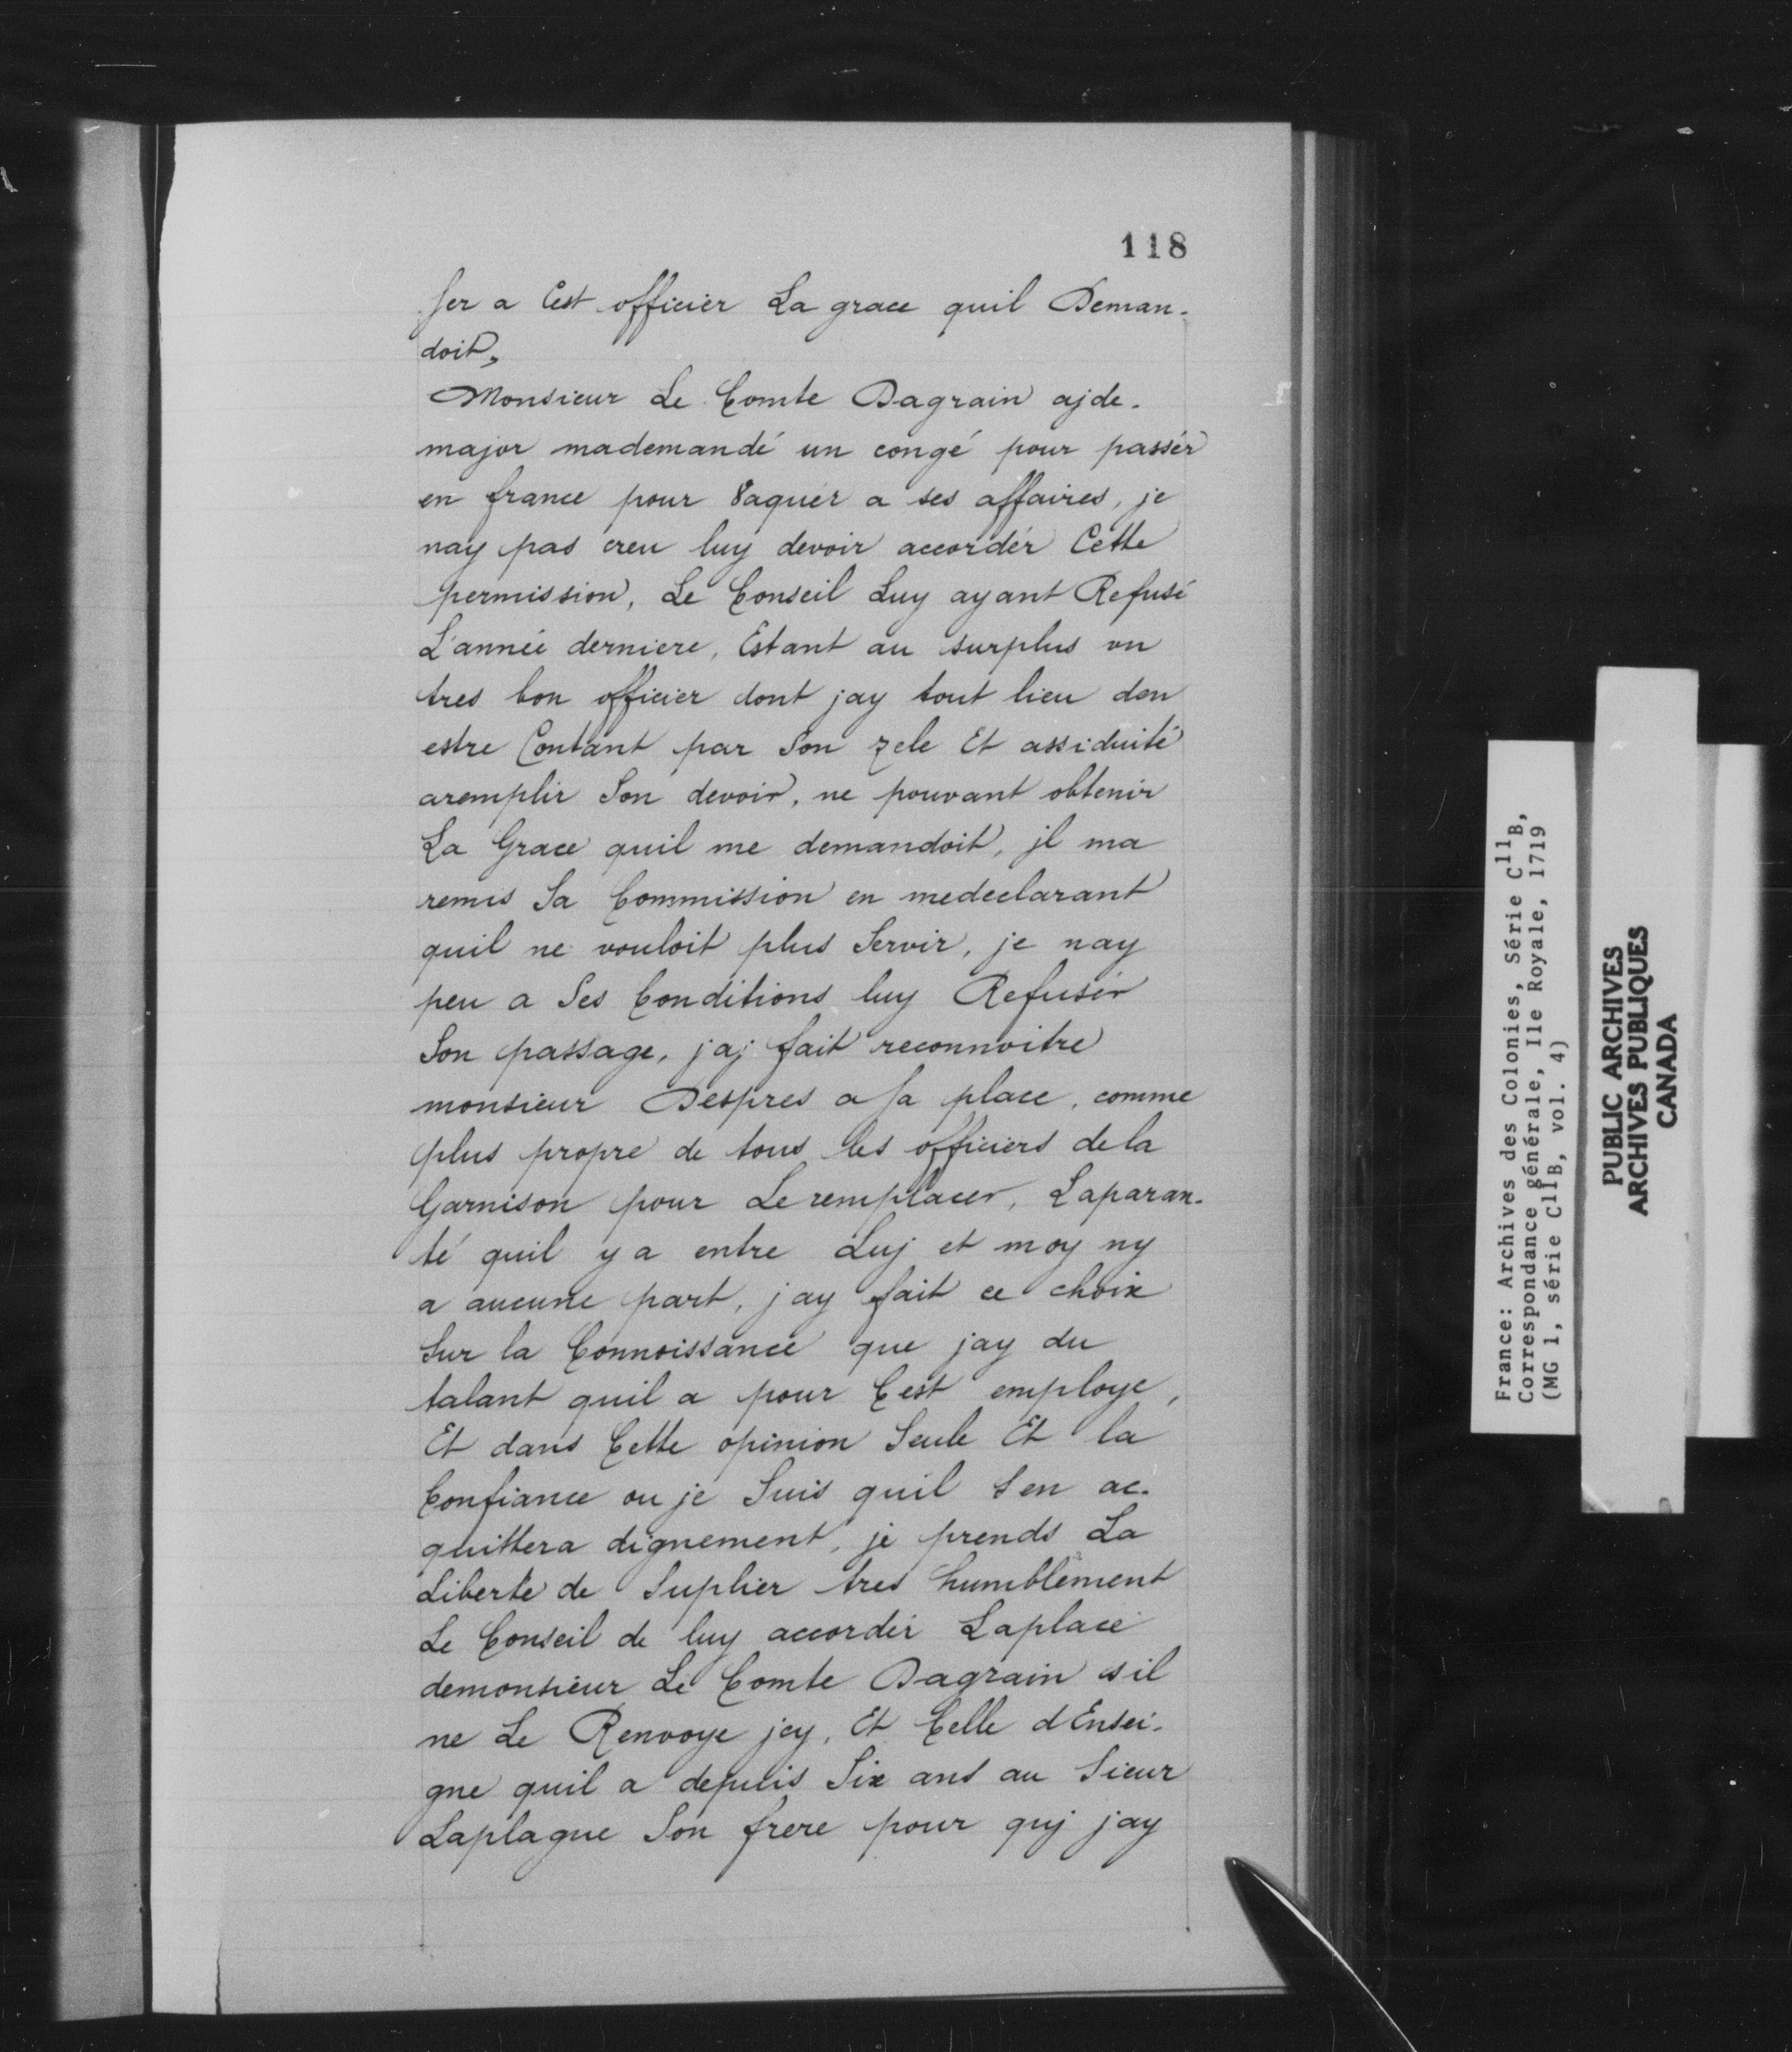 118
ser a Cest officier La grace quil Deman-
doit,
Monsieur Le Comte Dagrain ajde-
major mademandé un congé pour passér
en france pour Vaquér a ses affaires, je
nay pas creu luy devoir accordér Cette
permission, Le Conseil Luy ayant Refusé
L'année derniere, Estant au surplus un
tres bon officier dont jay tout lieu den
estre Contant par Son zele Et assiduité
aremplir Son devoir, ne pouvant obtenir
La Grace quil me demandoit, jl ma
remis Sa Commission en medeclarant
quil ne vouloit plus Servir, je nay
peu a Ses Conditions luy Refusér
Son passage, jaj fait reconnoitre
monsieur Despres a sa place, comme
plus propre de tous les officiers dela
Garnison pour Leremplacer, Laparan-
té quil y a entre Luj et moy ny
a aucune part, jay fait ce choix
Sur la Connoissance que jay du
talant quil a pour Cest employe,
Et dans Cette opinion Seule Et la
Confiance ou je Suis quil Sen ac-
quittera dignement, je prends La
Liberté de Suplier tres humblement
Le Conseil de luy accordér Laplace
demonsieur Le Comte Dagrain sil
ne Le Renvoye jcy, Et Celle dEnsei-
gne quil a depuis Six ans au Sieur
Laplague Son frere pour quj jay
France: Archives des Colonies, Série C11B,
Correspondance générale, Ile Royale, 1719
(MG 1, série C11B, vol. 4)
PUBLIC ARCHIVES
ARCHIVES PUBLIQUES
CANADA